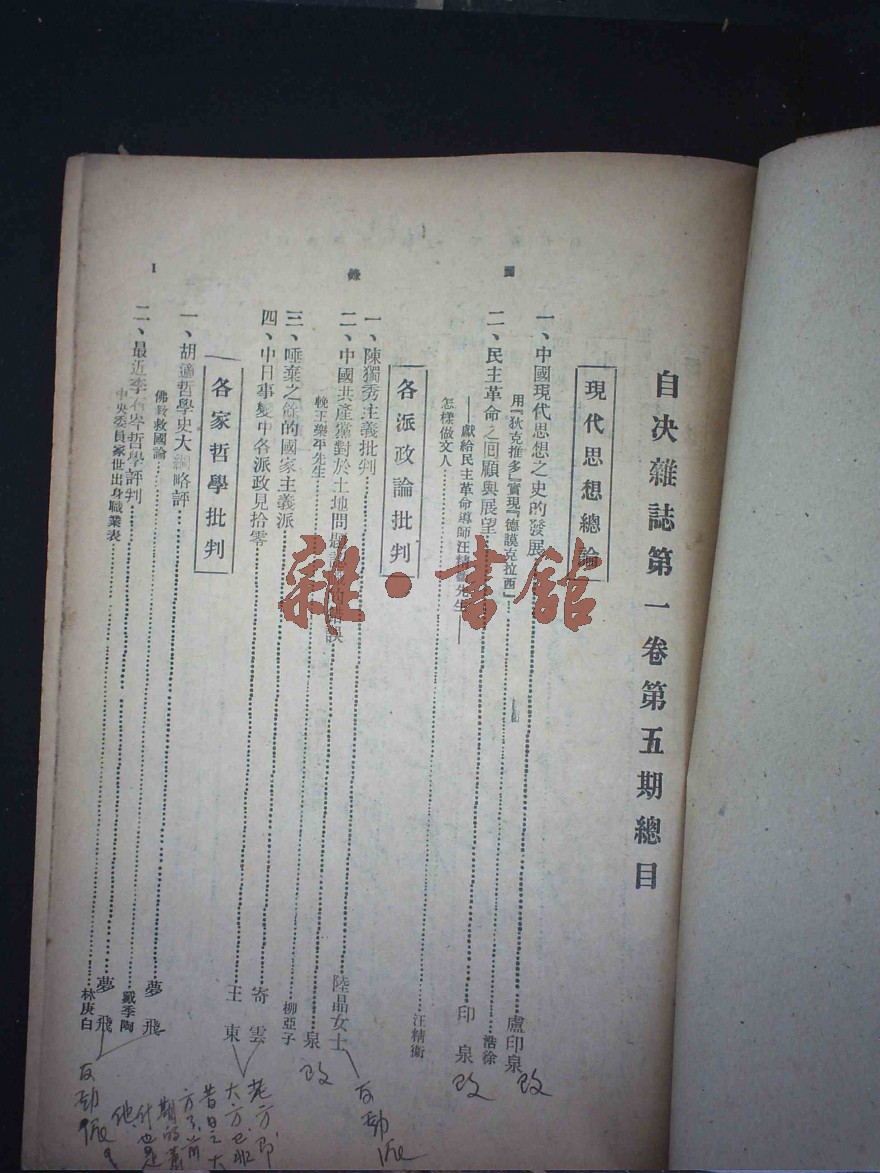 自决雜誌第一卷第五期總目
現代思想總論
一、中國現代思想之史的發展 盧印泉 改
用『狄克推多』實現『德謨克拉西』 浩徐
二、民主革命之回顧與展望 印泉 改
——獻給民主革命導師汪精衛先生——
怎樣做文人 汪精衛
各派政論批判
一、陳獨秀主義批判 陸晶女士 反動派
二、中國共產黨對於土地問題 的錯誤 泉 改
輓王樂平先生 柳亞子
三、唾棄之餘的國家主義派 寄雲
四、中日事變中各派政見拾零 王東
老方即
大方已非
昔日之大
方了前
期的
什也是
他
各家哲學批判
一、胡適哲學史大綱略評 夢飛
佛教救國論 戴季陶
二、最近李石岑哲學評判 夢飛
中央委員家世出身職業表 林庚白
反動派
目
錄
1
雜·書館